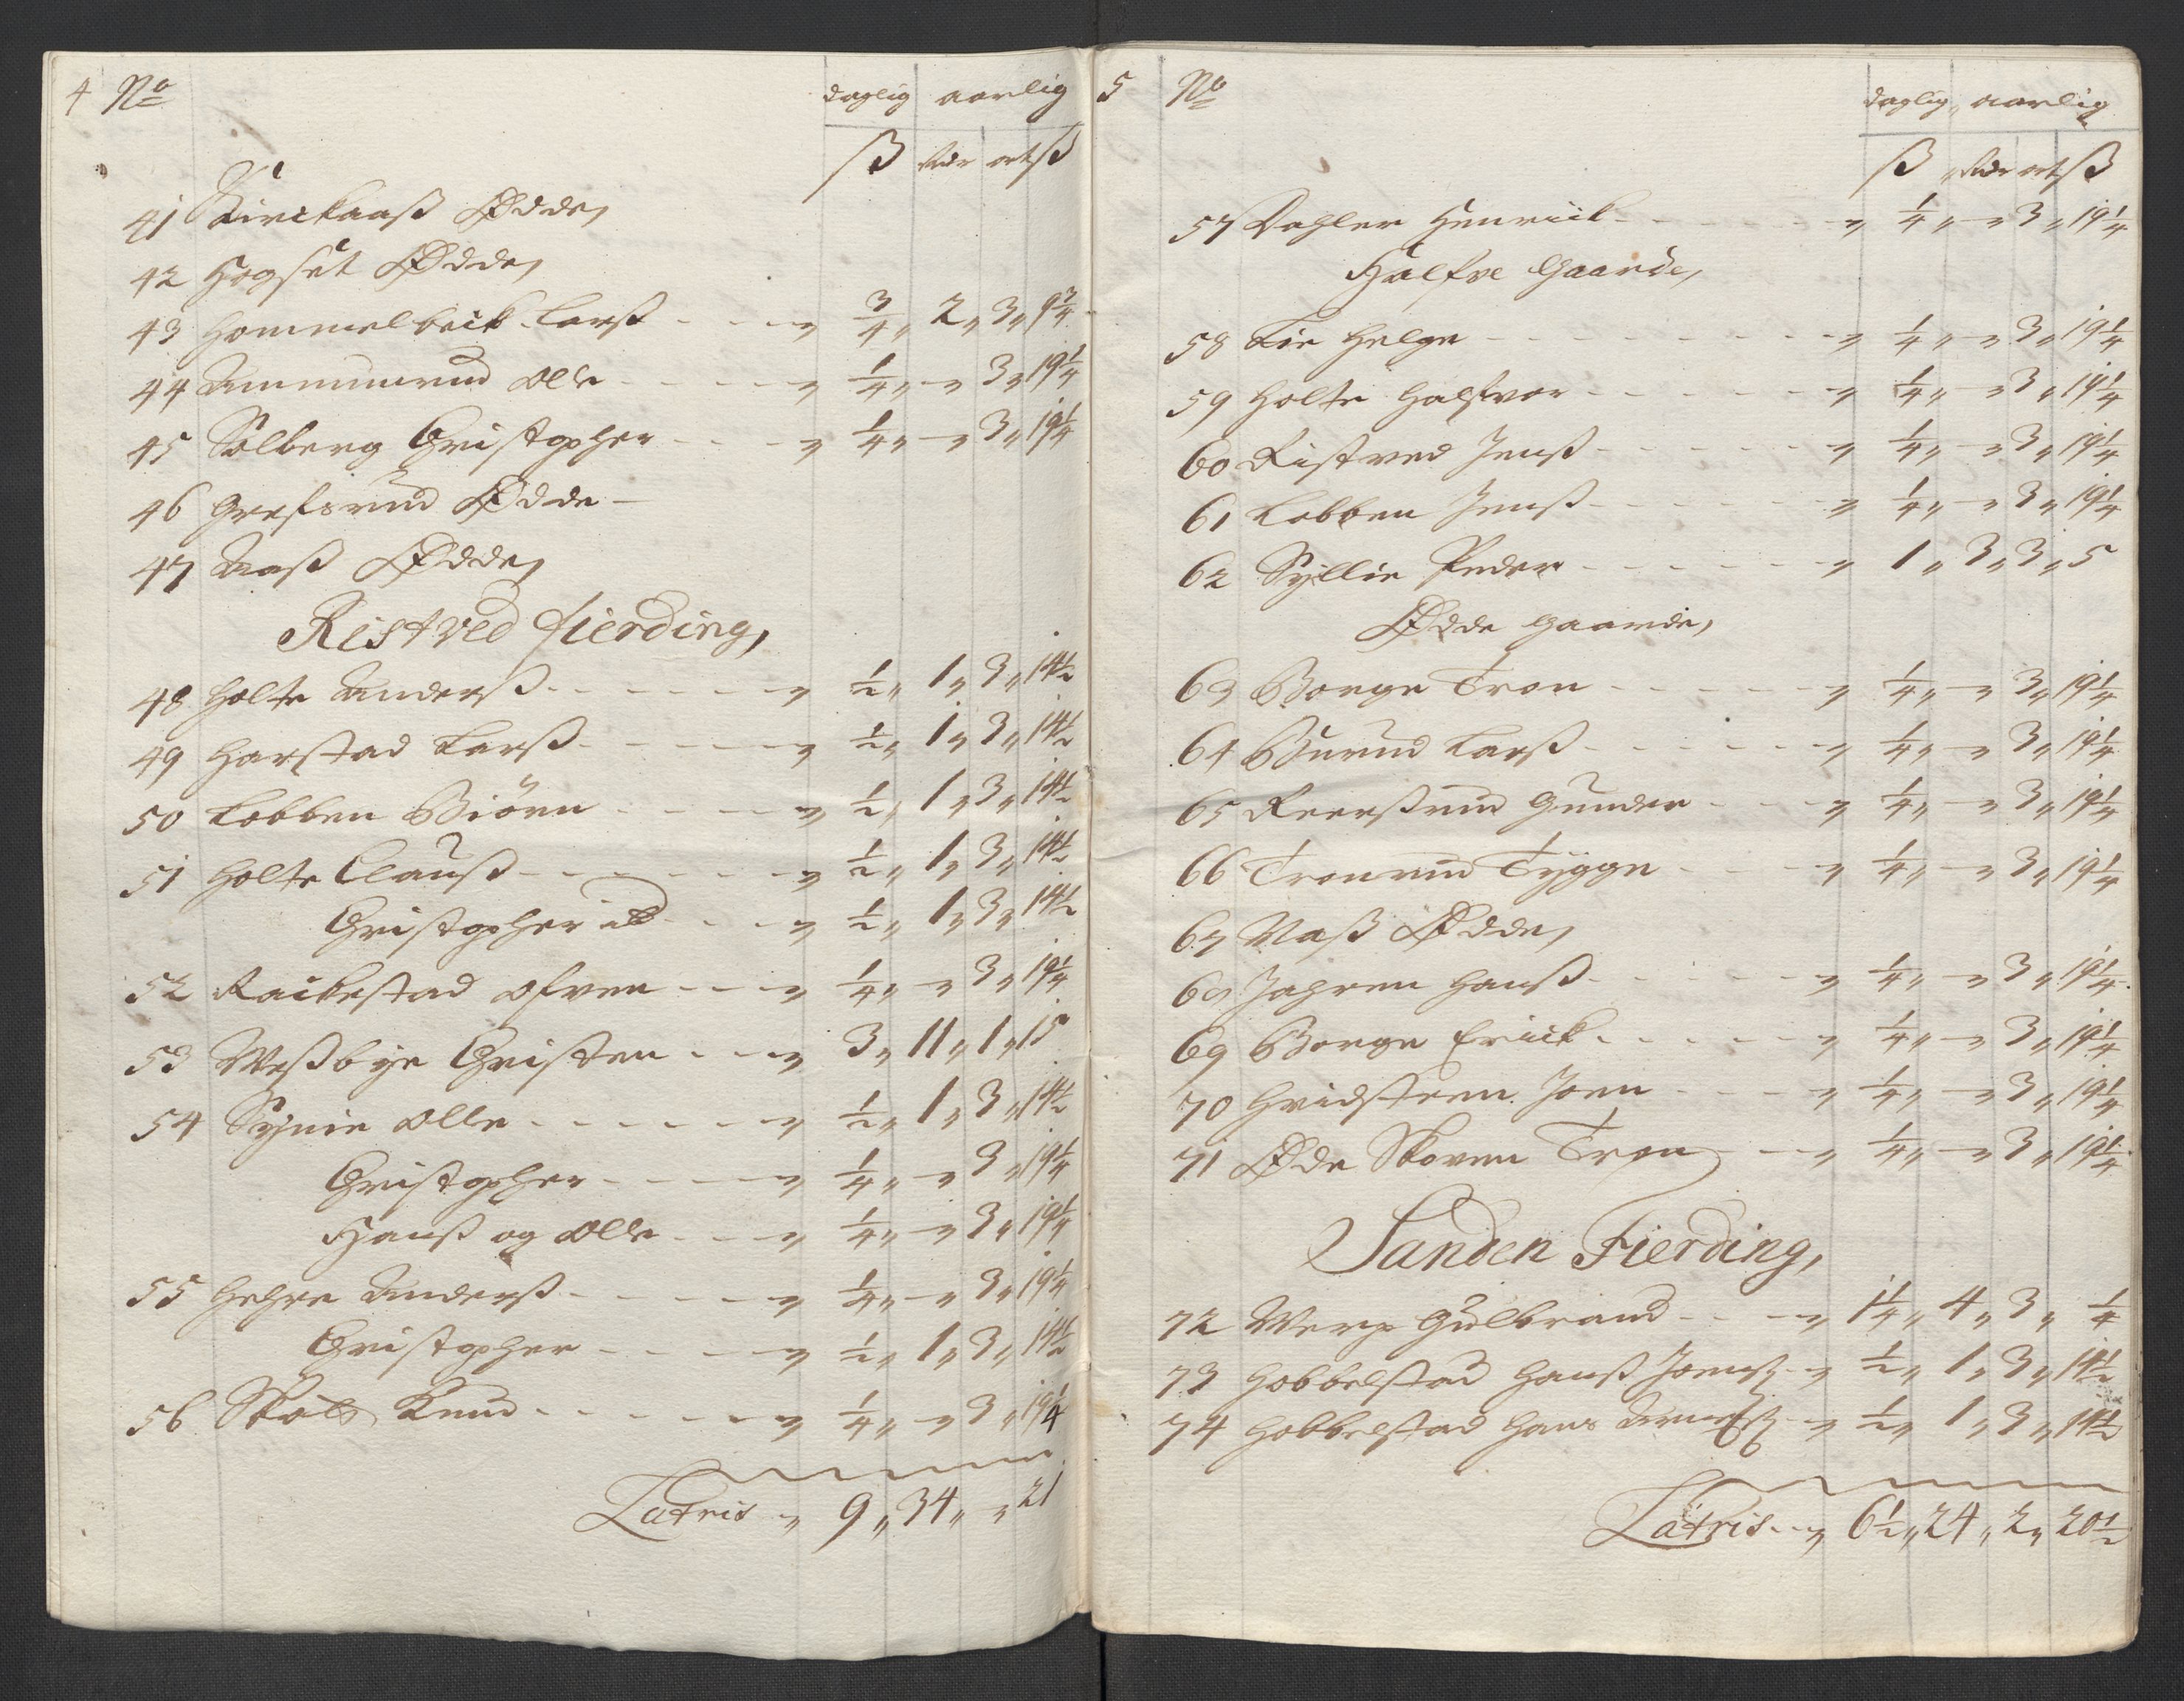 4 No daglig aarlig
ß Rdr ort ß
41 Kirckaaß Ødde,
42 Hogset Ødde,
43 Hommelbeck Larß - - - „ 3/4 „ 2 „ 3 „ 9 3/4
44 Ammunrud Olle - - - „ 1/4 „ - „ 3 „ 19 1/4
45 Solberg Christopher - - - „ 1/4 „ - „ 3 „ 19 1/4
46 Grefsrud Ødde -
47 Aaß Ødde,
Ristved fierding,
48 Holte Anderß - - - „ 1/2 „ 1 „ 3 „ 14 1/2
49 Harstad Larß - - - „ 1/2 „ 1 „ 3 „ 14 1/2
50 Lobben Biörn - - - „ 1/2 „ 1 „ 3 „ 14 1/2
51 Holte Clauß - - - „ 1/2 „ 1 „ 3 „ 14 1/2
Christopher ib - - - „ 1/2 „ 1 „ 3 „ 14 1/2
52 Rackestad Ofven - - - „ 1/4 „ - „ 3 „ 19 1/4
53 Weßbye Christen - - - „ 3 „ 11 „ 1 „ 15
54 Synie Olle - - - „ 1/2 „ 1 „ 3 „ 14 1/2
Christopher - - - „ 1/4 „ - „ 3 „ 19 1/4
Hanß og Olle - - - „ 1/4 „ - „ 3 „ 19 1/4
55 Hehre Anderß - - - „ 1/4 „ - „ 3 „ 19 1/4
Christopher - - - „ 1/2 „ 1 „ 3 „ 14 1/2
56 Knud - - - „ 1/4 „ - „ 3 „ 19 1/4
Latris „ 9 „ 34 „ - „ 21
5 No daglig „ aarlig
ß „ Rdr ort ß
57 Dahler Henrick - - - „ 1/4 „ - „ 3 „ 19 1/4
Halfve Gaarde,
58 Lie Helge - - - „ 1/4 „ - „ 3 „ 19 1/4
59 Holte Halfvor - - - „ 1/4 „ - „ 3 „ 19 1/4
60 Ristved Jenß - - - „ 1/4 „ - „ 3 „ 19 1/4
61 Lobben Jenß - - - „ 1/4 „ - „ 3 „ 19 1/4
62 Syllie Peder - - - „ 1 „ 3 „ 3 „ 5
Ødde Gaarde,
63 Borge Tron - - - „ 1/4 „ - „ 3 „ 19 1/4
64 Burud Larß - - - „ 1/4 „ - „ 3 „ 19 1/4
65 Reerßrud Gunder - - - „ 1/4 „ - „ 3 „ 19 1/4
66 Tronrud Tygge - - - „ 1/4 „ - „ 3 „ 19 1/4
67 Naß Ødde,
68 Jahren Hanß - - - „ 1/4 „ - „ 3 „ 19 1/4
69 Borge Erick - - - „ 1/4 „ - „ 3 „ 19 1/4
70 Hvidsteen Joen - - - „ 1/4 „ - „ 3 „ 19 1/4
71 Øde Skoven Tron - - „ 1/4 „ - „ 3 „ 19 1/4
Sanden Fierding,
72 Werp Gulbrand - - - „ 1 1/4 „ 4 „ 3 „ 1/4
73 Hobbelstad Hanß Joenß - „ 1/2 „ 1 „ 3 „ 14 1/2
74 Hobbelstad Hans - „ 1/2 „ 1 „ 3 „ 14 1/2
Latris - - „ 6 1/2 „ 24 „ 2 „ 20 1/2